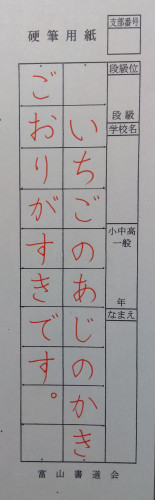 硬筆用紙
支部番号
段級位
段級
学校名
小中高
一般
年
なまえ
いちごのあじのかき
ごおりがすきです。
富山書道会